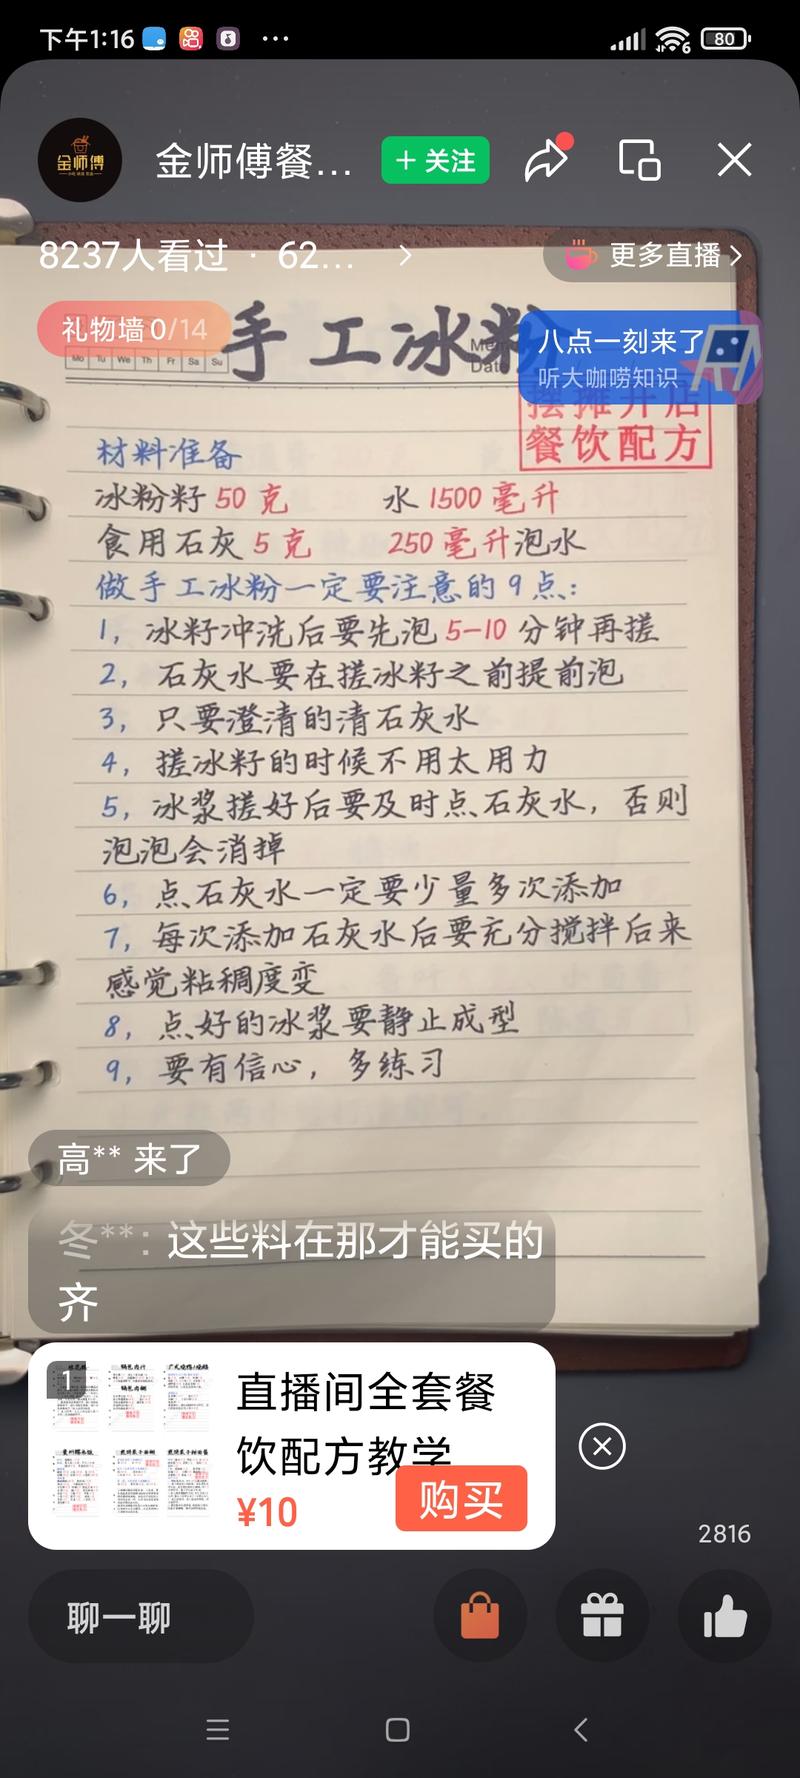 下午1:16
80
金师傅
金师傅餐…
+ 关注
8237人看过 · 62…
更多直播
礼物墙 0/14
手工冰粉
八点一刻来了
听大咖唠知识
Mo Tu We Th Fr Sa Su
摆摊开店
餐饮配方
材料准备
冰粉籽 50 克 水 1500 毫升
食用石灰 5 克 250 毫升泡水
做手工冰粉一定要注意的 9 点：
1，冰籽冲洗后要先泡 5-10 分钟再搓
2，石灰水要在搓冰籽之前提前泡
3，只要澄清的清石灰水
4，搓冰籽的时候不用太用力
5，冰浆搓好后要及时点石灰水，否则
泡泡会消掉
6，点石灰水一定要少量多次添加
7，每次添加石灰水后要充分搅拌后来
感觉粘稠度变
8，点好的冰浆要静止成型
9，要有信心，多练习
高** 来了
冬**：这些料在那才能买的
齐
1
直播间全套餐
饮配方教学
¥10
购买
2816
聊一聊